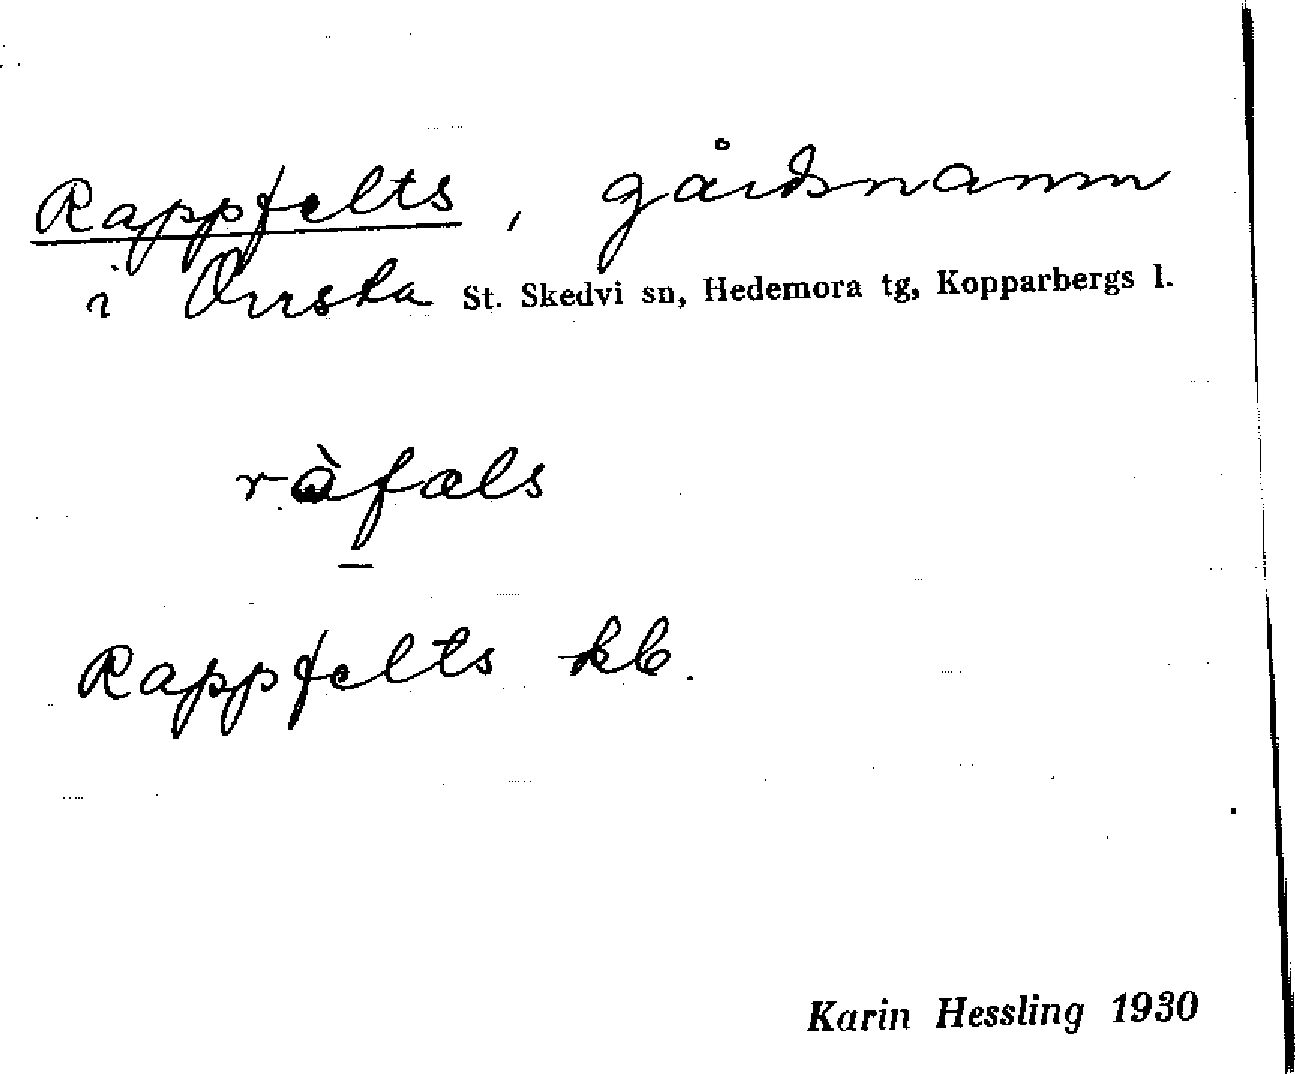 Rappfelts, gårdsnamn
i Orrsta St. Skedvi sn, Hedemora tg, Kopparbergs l.
ràfæls
Rappfelts kb.
Karin Hessling 1930